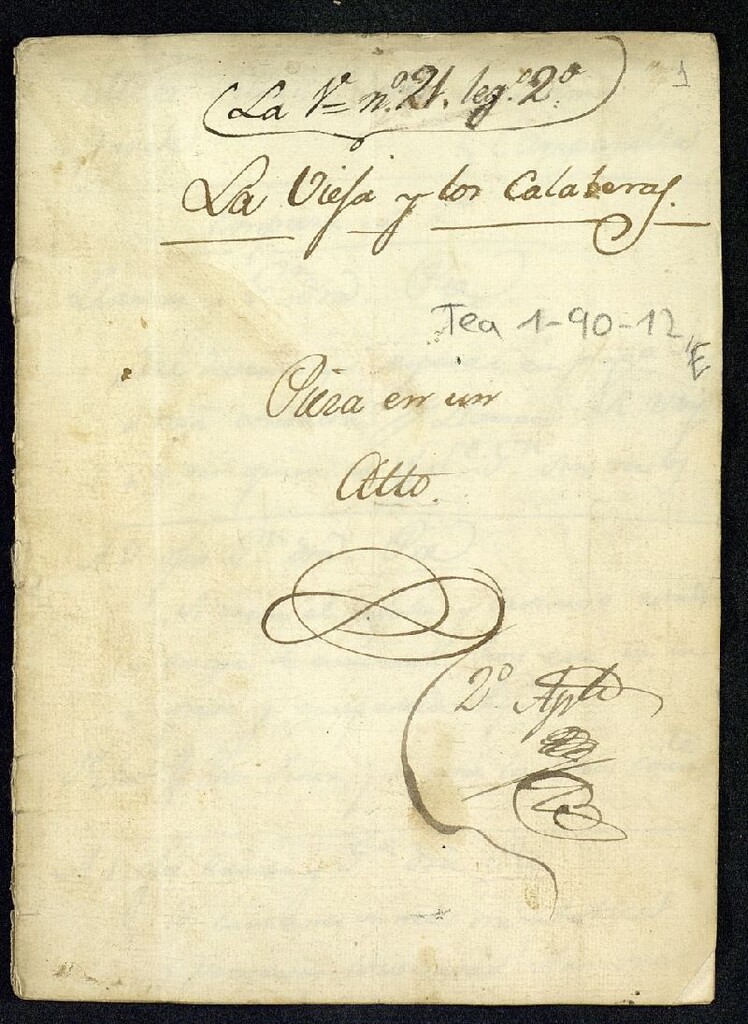 1
La V= nº 21. legº 2º
La Vieja y los Calaberas.
Tea 1-90-12, E
Pieza en un
Acto.
2º Apto